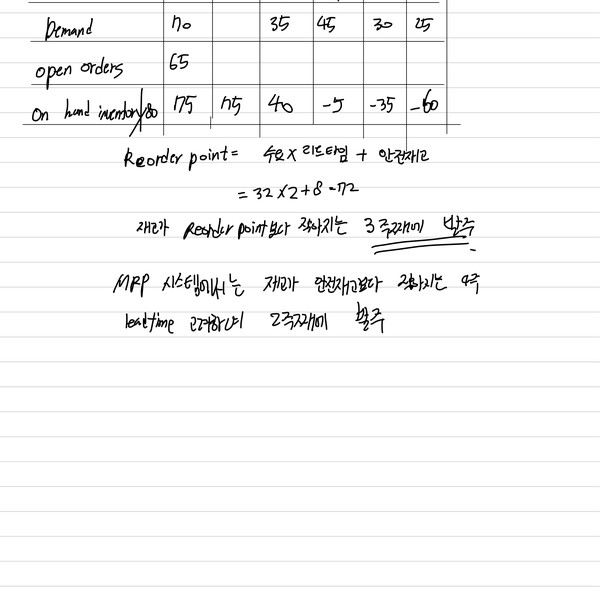 Demand 70 35 45 30 25
open orders 65
On hand inventory/80 175 175 40 -5 -35 -60
Reorder point = 수요 x 리드타임 + 안전재고
= 32 x 2 + 8 = 72
재고가 Reorder point보다 작아지는 3주째에 발주
MRP 시스템에서는 재고가 안전재고보다 작아지는 4주
leadtime 고려하니 2주째에 발주